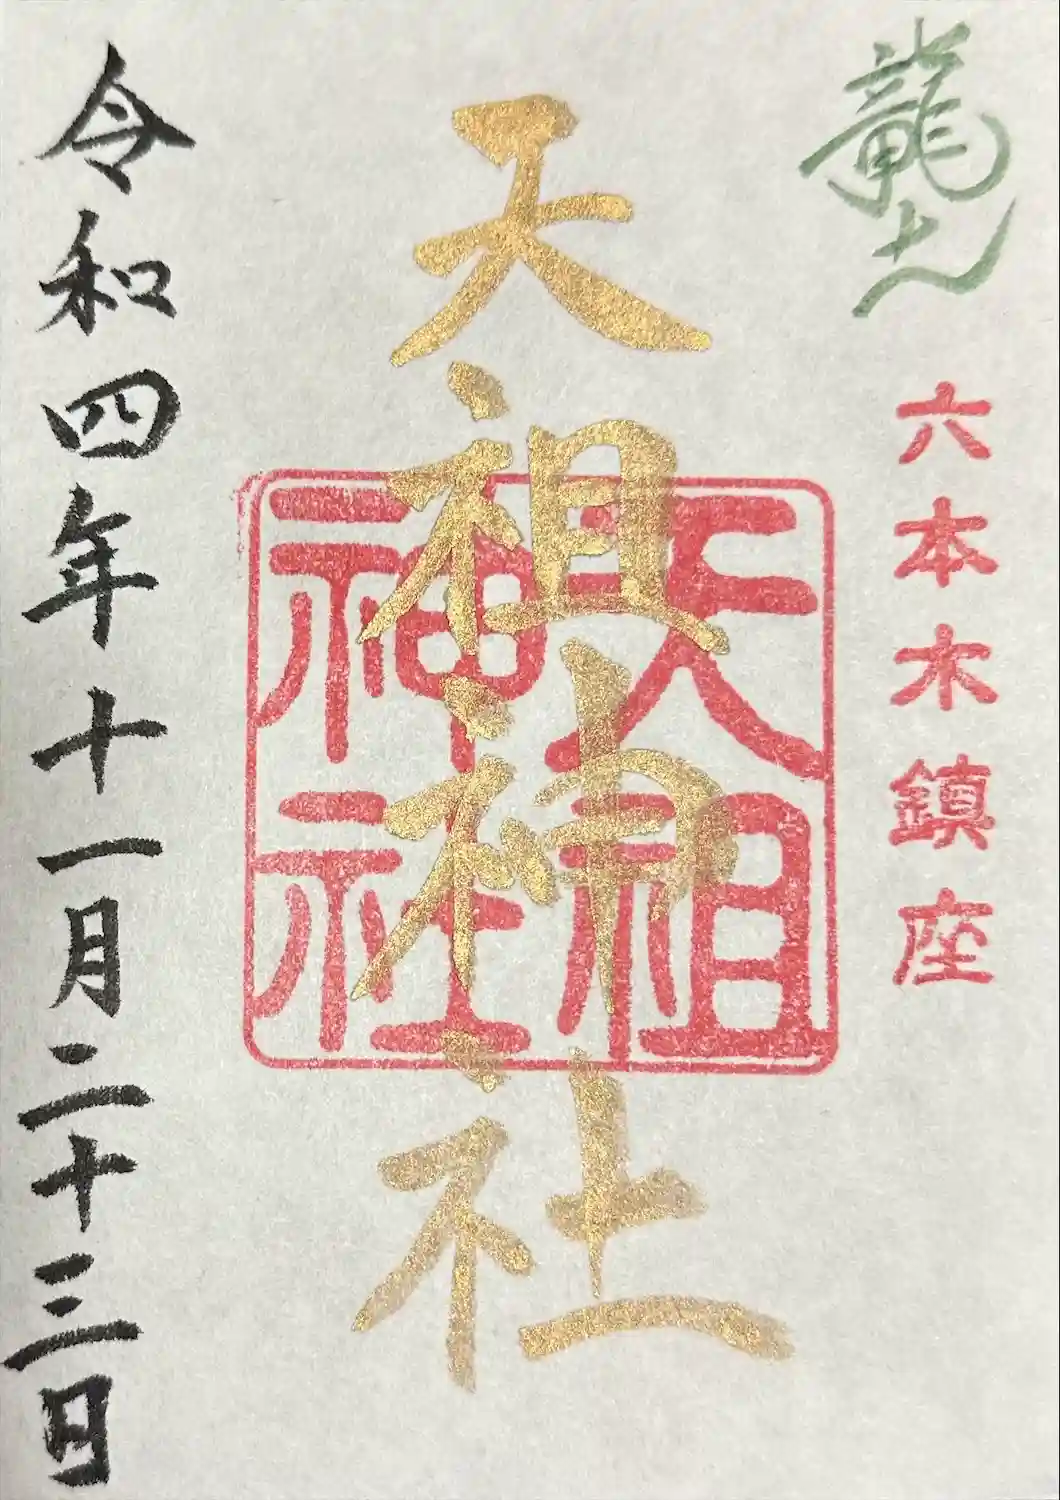 龍土
六本木鎮座
天祖神社
天祖神社
令和四年十一月二十三日